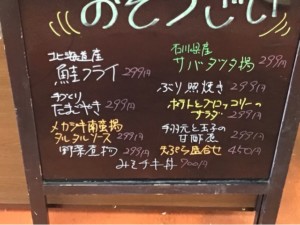 おそうざい
北海道産
鮭フライ 299円
手づくり
たまごやき 299円
メカジキ南蛮揚
タルタルソース 299円
野菜産物 299円
石川県産
サバタツタ揚 299円
ぶり照焼き 299円
ポテトとブロッコリーの
サラダ 299円
手羽元と玉子の
甘酢煮 299円
天ぷら盛合せ 450円
みそチキ丼 700円